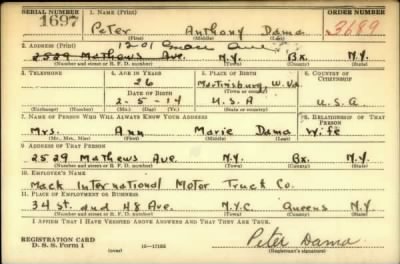 SERIAL NUMBER 1. NAME (Print) ORDER NUMBER
1697 Peter Anthony Dama 3689
(First) (Middle) (Last)
2. ADDRESS (Print) 1201 Ave
2529 Mathews Ave. N.Y. Bx. N.Y.
(Number and street or R. F. D. number) (Town) (County) (State)
3. TELEPHONE 4. AGE IN YEARS 5. PLACE OF BIRTH 6. COUNTRY OF CITIZENSHIP
26 Martinsburg, W. Va.
DATE OF BIRTH (Town or county)
2-5-14 U.S.A U.S.A.
(Exchange) (Number) (Mo.) (Day) (Yr.) (State or country)
7. NAME OF PERSON WHO WILL ALWAYS KNOW YOUR ADDRESS 8. RELATIONSHIP OF THAT PERSON
Mrs. Ann Marie Dama Wife
(Mr., Mrs., Miss) (First) (Middle) (Last)
9. ADDRESS OF THAT PERSON
2529 Mathews Ave. N.Y. Bx. N.Y.
(Number and street or R. F. D. number) (Town) (County) (State)
10. EMPLOYER'S NAME
Mack International Motor Truck Co.
11. PLACE OF EMPLOYMENT OR BUSINESS
34 st. and 48 Ave. N.Y.C. Queens N.Y
(Number and street or R. F. D. number) (Town) (County) (State)
I AFFIRM THAT I HAVE VERIFIED ABOVE ANSWERS AND THAT THEY ARE TRUE.
REGISTRATION CARD
D. S. S. Form 1 (over) 16-17105 Peter Dama
(Registrant's signature)